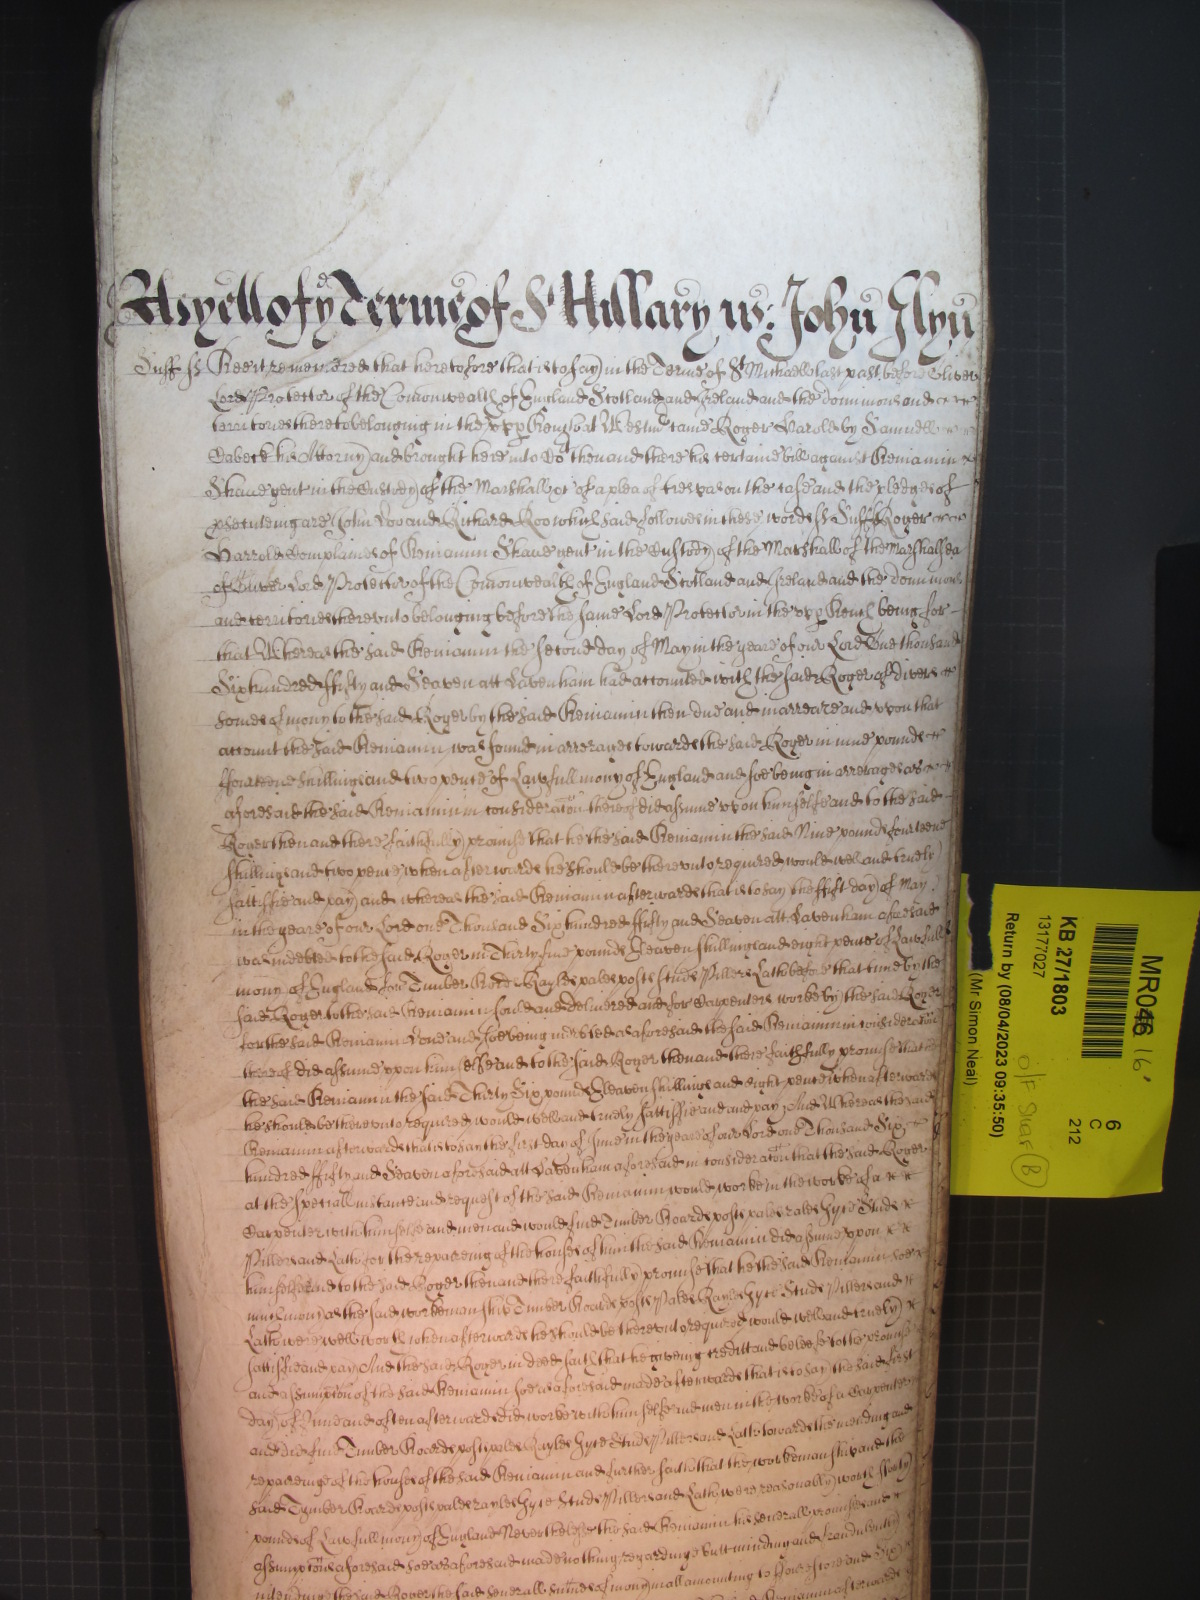 As yett of ye Terme of St Hillary
Suff ss Bee it remembred that heretofore that is to say in the Terme of St Michaell last past before Oliver
Lord Protector of the Comonwealth of England Scotland and Ireland and the dominions and
territories thereto belonging in the upp Bench at Westmr came Roger Harrold by Samuell
his Attorny and brought here into Co:t then and there his certaine bill against Beniamin
Skane gent in the Custody of the Marshall &c of a plea of trespas on the case and the pledges of
psecuteing are John Doo and Richard Roo which said followes in these words ss Suff Roger
Harrold Complaines of Beniamin Skane gent in the Custody of the Marshall of the Marshalsea
of Oliver Lord Protector of the Comonwealth of England Scotland and Ireland and the dominions
and territories thereunto belonging before the same Lord Protector in the upp Bench being for
that Whereas the said Beniamin the second day of May in the yeare of our Lord One thousand
Six hundred ffifty and Seaven att Lavenham had accounted with the said Roger of divers
somes of mony to the said Roger by the said Beniamin then due and in arreare and upon that
account the said Beniamin was found in arrerages towards the said Roger in nine pounds
ffourteene shillings and two pence of Lawfull mony of England and soe being in arrerages as
aforesaid the said Beniamin in consideracon thereof did assume upon himselfe and to the said
Roger then and there faithfully promise that he the said Beniamin the said Nine pounds fourteene
shillings and two pence when afterwards he should be thereunto required would well and truely
sattisfie and pay and whereas the said Beniamin afterwards that is to say the ffist day of May
in the yeare of our Lord one Thousand Six hundred ffifty and Seaven att Lavenham aforesaid
was indebted to the said Roger in Thirty five pounds Eleaven shillings and eight pence of Lawfull
mony of England for Timber Bords Rayles pales posts studs Pillers Laths before that time by the
said Roger to the said Beniamin sould and delivered and for Carpenters worke by the said Roger
for the said Beniamin done and soe being indebted as aforesaid the said Beniamin in consideracon
thereof did assume upon himselfe and to the said Roger then and there faithfully promise that he
the said Beniamin the said Thirty Six pounds Eleaven shillings and eight pence when afterwards
he should be thereunto required would well and truely sattisfie and and pay And Whereas the said
Beniamin afterwards that is to say the first day of June in the yeare of our Lord one Thousand Six
hundred ffifty and Seaven aforesaid att Lavenham aforesaid in consideracon that the said Roger
at the speciall instance and request of the said Beniamin would worke in the worke of a
Carpenter with himselfe and men and would find Timber Boards posts pales rales Studs
Pillers and Laths for the repaireing of the houses of him the said Beniamin did assume upon
himselfe and to the said Roger then and there faithfully promise that he the said Beniamin soe
much mony as the said workemanship Timber Boards posts Pales Rayles Studs Pillers and
Laths were well worth when afterwards he should be thereunto required would well and truely
sattisfie and pay And the said Roger in deed saith that he giveing creditt and beleefe to the promise
and assumption of the said Beniamin soe as aforesaid made afterwards that is to say the said first
day of June and often afterwards did worke with himselfe and men in the worke of a Carpenter
and did find Timber Boards posts pales Rayles Studs Pillers and Laths towards the mending and
repaireinge of the houses of the said Beniamin and further saith that the workemanship and the
said Tymber Boards posts pales rayles Studs Pillers and Laths were reasonally worth fforty
pounds of Lawfull mony of England Neverthelesse the said Beniamin his severall promises and
assumptions aforesaid soe as aforesaid made nothing regardinge butt minding and fraudulently
intendinge the said Roger the said severall summes of mony in all amounting to
MR046 16'
6
C
212
KB 27/1803
13177027
Return by (08/04/2023 09:35:50)
(Mr Simon Neal)
O/F Staff B